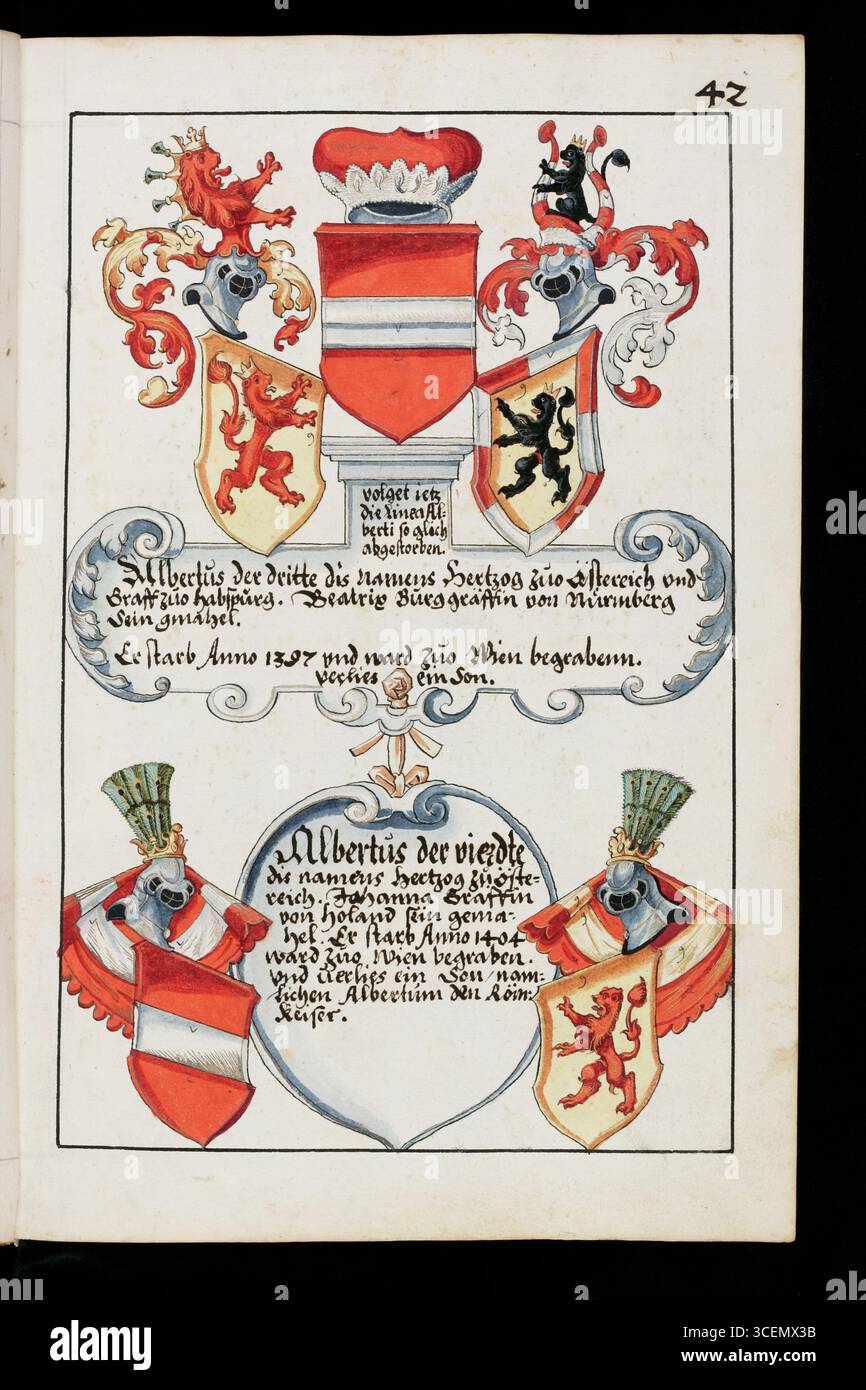 42
volget ietz
die Linea Al-
berti so glich
abgestorben.
Albertus der dritte dis Namens Hertzog zuo Östereich vnd
Graff zuo habspurg. Beatrix Burggräffin von Nürmberg
Sein gmahel.
Er starb Anno 1397 vnd ward zuo Wien begrabenn.
verlies ein Son.
Albertus der vierdte
dis namens Hertzog zu Öste-
reich. Johanna Gräffin
von Holand sein gema-
hel. Er starb Anno 1404
ward zuo Wien begraben.
vnd verlies ein Son nam-
lichen Albertum den Röm:
Keiser.
alamy
Image ID: 3CEMX3B
www.alamy.com